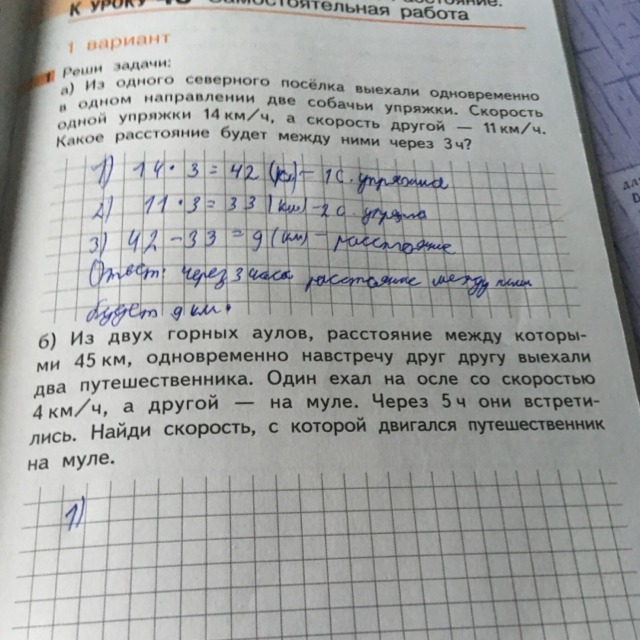 К УРОКУ
Самостоятельная работа
1 вариант
1 Реши задачи:
а) Из одного северного посёлка выехали одновременно
в одном направлении две собачьи упряжки. Скорость
одной упряжки 14 км/ч, а скорость другой — 11 км/ч.
Какое расстояние будет между ними через 3 ч?
1) 14 · 3 = 42 (км) – 1 с. упряжка
2) 11 · 3 = 33 (км) – 2 с.
3) 42 – 33 = 9 (км) – расстояние
Ответ: через 3 часа расстояние между ними
будет 9 км.
б) Из двух горных аулов, расстояние между которы-
ми 45 км, одновременно навстречу друг другу выехали
два путешественника. Один ехал на осле со скоростью
4 км/ч, а другой — на муле. Через 5 ч они встрети-
лись. Найди скорость, с которой двигался путешественник
на муле.
1)